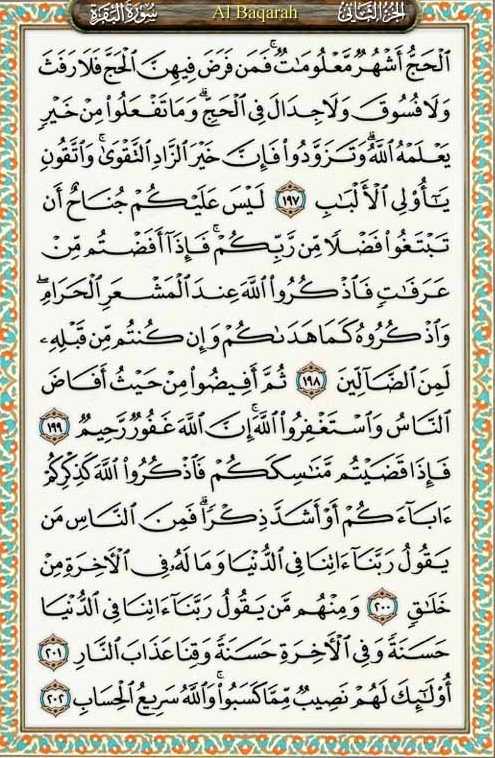 سُورَةُ البَقَرَةِ Al Baqarah الجُزْءُ الثَّانِي
ٱلْحَجُّ أَشْهُرٌ مَّعْلُومَٰتٌ ۚ فَمَن فَرَضَ فِيهِنَّ ٱلْحَجَّ فَلَا رَفَثَ
وَلَا فُسُوقَ وَلَا جِدَالَ فِى ٱلْحَجِّ ۗ وَمَا تَفْعَلُوا۟ مِنْ خَيْرٍ
يَعْلَمْهُ ٱللَّهُ ۗ وَتَزَوَّدُوا۟ فَإِنَّ خَيْرَ ٱلزَّادِ ٱلتَّقْوَىٰ ۚ وَٱتَّقُونِ
يَٰٓأُو۟لِى ٱلْأَلْبَٰبِ ١٩٧ لَيْسَ عَلَيْكُمْ جُنَاحٌ أَن
تَبْتَغُوا۟ فَضْلًا مِّن رَّبِّكُمْ ۚ فَإِذَآ أَفَضْتُم مِّنْ
عَرَفَٰتٍ فَٱذْكُرُوا۟ ٱللَّهَ عِندَ ٱلْمَشْعَرِ ٱلْحَرَامِ ۖ
وَٱذْكُرُوهُ كَمَا هَدَىٰكُمْ وَإِن كُنتُم مِّن قَبْلِهِۦ
لَمِنَ ٱلضَّآلِّينَ ١٩٨ ثُمَّ أَفِيضُوا۟ مِنْ حَيْثُ أَفَاضَ
ٱلنَّاسُ وَٱسْتَغْفِرُوا۟ ٱللَّهَ ۚ إِنَّ ٱللَّهَ غَفُورٌ رَّحِيمٌ ١٩٩
فَإِذَا قَضَيْتُم مَّنَٰسِكَكُمْ فَٱذْكُرُوا۟ ٱللَّهَ كَذِكْرِكُمْ
ءَابَآءَكُمْ أَوْ أَشَدَّ ذِكْرًا ۗ فَمِنَ ٱلنَّاسِ مَن
يَقُولُ رَبَّنَآ ءَاتِنَا فِى ٱلدُّنْيَا وَمَا لَهُۥ فِى ٱلْأَخِرَةِ مِنْ
خَلَٰقٍ ٢٠٠ وَمِنْهُم مَّن يَقُولُ رَبَّنَآ ءَاتِنَا فِى ٱلدُّنْيَا
حَسَنَةً وَفِى ٱلْأَخِرَةِ حَسَنَةً وَقِنَا عَذَابَ ٱلنَّارِ ٢٠١
أُو۟لَٰٓئِكَ لَهُمْ نَصِيبٌ مِّمَّا كَسَبُوا۟ ۚ وَٱللَّهُ سَرِيعُ ٱلْحِسَابِ ٢٠٢